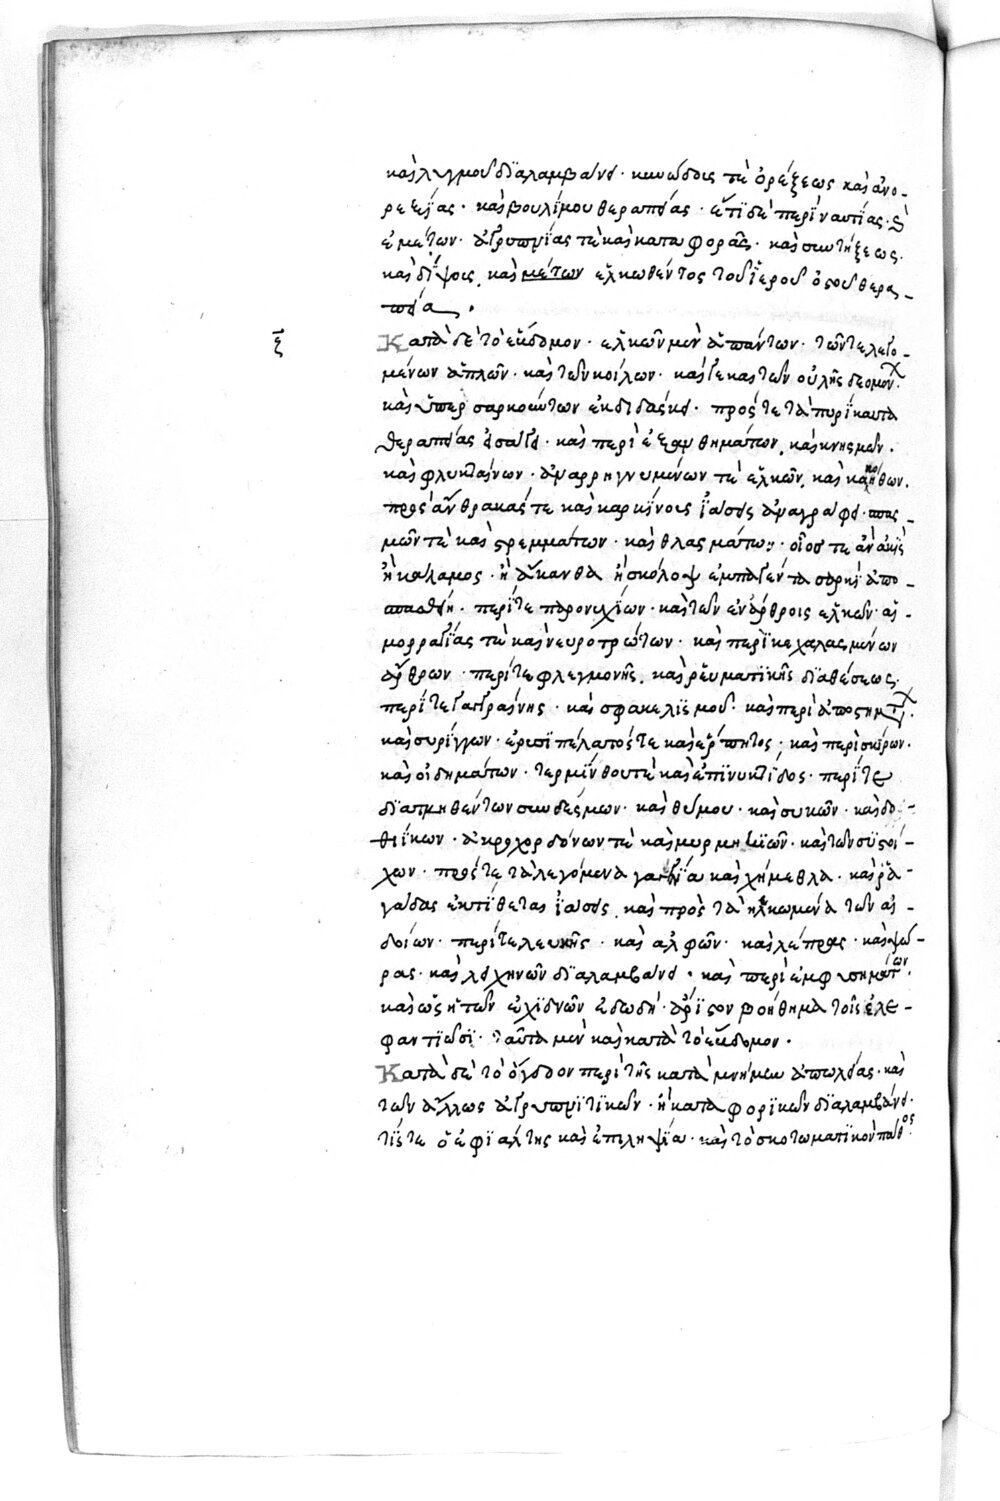 καὶ λυγμοῦ διαλαμβάνει· κυνώδους τὲ ὀρέξεως καὶ ἀνο-
ρεξίας· καὶ βουλίμου θεραπείας· ἔτι δὲ περὶ ναυτίας· καὶ
ἐμέτων· ἀγρυπνίας τὲ καὶ καταφορᾶς· καὶ συντήξεως·
καὶ δίψους, καὶ μέτων ἑλκωθέντος τοῦ ἱεροῦ ὀστοῦ θερα-
πεία.
ξ
Κατὰ δὲ τὸ ἕβδομον· ἑλκῶν μὲν ἁπάντων· τῶν τε λεγο-
μένων ἁπλῶν· καὶ τῶν κοίλων· καὶ ἑκάστων οὐλῆς δεομένων·
καὶ ὑπερσαρκούντων ἐκδιδάσκει· πρός τε τὰ πυρίκαυτα
θεραπείας εἰσάγει· καὶ περὶ ἐξανθημάτων, καὶ κνησμῶν·
καὶ φλυκταίνων· ἀναρρηγνυμένων τὲ ἑλκῶν, καὶ κακοήθων·
πρὸς ἄνθρακάς τε καὶ καρκίνους ἰάσεις ἀναγράφει· σπασ-
μῶν τὲ καὶ στρεμμάτων· καὶ θλασμάτων· οἷόν τε ἂν ἀκὶς
ἢ κάλαμος· ἢ ἄκανθα ἢ σκόλοψ ἐμπαγέντα σαρκὶ ἀπο-
σπασθῇ· περί τε παρονυχίων· καὶ τῶν ἐν ἄρθροις ἑλκῶν· αἱ-
μορραγίας τὲ καὶ νευροτρώτων· καὶ περὶ κεχαλασμένων
ἄρθρων· περί τε φλεγμονῆς, καὶ ῥευματικῆς διαθέσεως·
περί τε γαγγραίνης· καὶ σφακελισμοῦ· καὶ περὶ ἀποστημάτων·
καὶ συρίγγων· ἐρυσιπέλατός τε καὶ ἕρπητος, καὶ περὶ σκίρων·
καὶ οἰδημάτων· τερμίνθου τὲ καὶ ἐπινυκτίδος· περί τε
διατμηθέντων συνδέσμων· καὶ θύμου· καὶ συκῶν· καὶ δο-
θιήνων· ἀκροχορδόνων τὲ καὶ μυρμηκιῶν· καὶ τῶν συστοί-
χων· πρός τε τὰ λεγόμενα γαγγλία καὶ χήμεθλα· καὶ ῥα-
γάδας ἐκτίθεται ἰάσεις, καὶ πρὸς τὰ ἡλκωμένα τῶν αἰ-
δοίων· περί τε λευκῆς· καὶ ἀλφῶν· καὶ λέπρας· καὶ ψώ-
ρας· καὶ λειχηνῶν διαλαμβάνει· καὶ περὶ ἐμφυσημάτων·
καὶ ὡς ἡ τῶν ἐχιδνῶν ἐδωδὴ· ἄριστον βοήθημα τοῖς ἐλε-
φαντιῶσι· ταῦτα μὲν καὶ κατὰ τὸ ἕβδομον·
Κατὰ δὲ τὸ ὄγδοον περὶ τῆς κατὰ μνήμην ἀπωλείας· καὶ
τῶν ἄλλως ἀγρυπνητικῶν· ἢ καταφορικῶν διαλαμβάνει·
τίς τε ὁ ἐφιάλτης καὶ ἐπιληψία· καὶ τὸ σκοτωματικὸν πάθος·